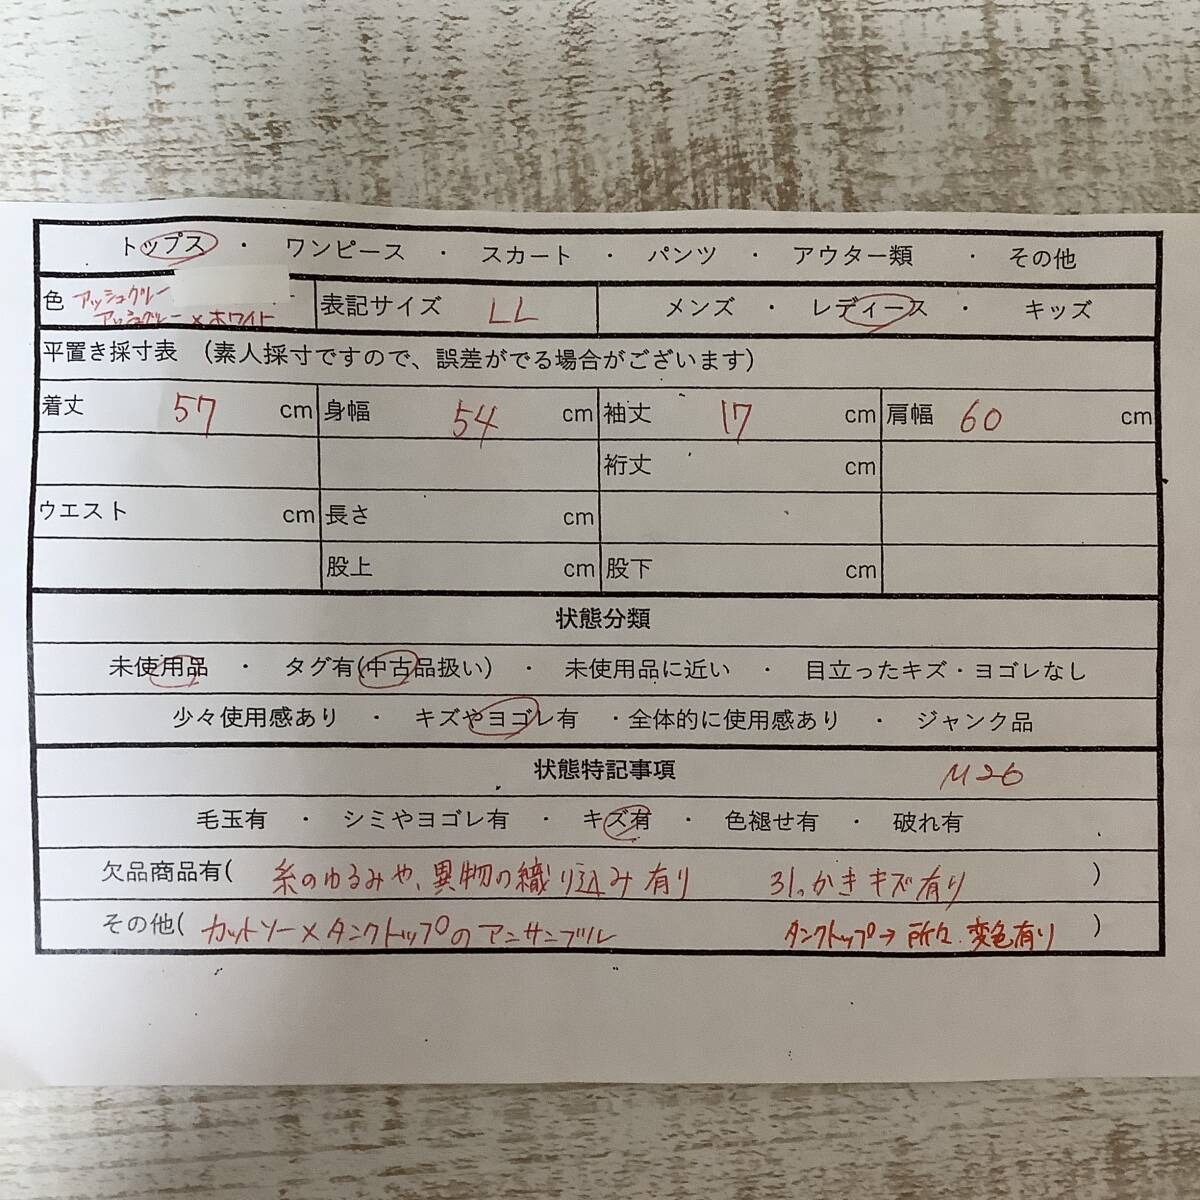 トップス ・ ワンピース ・ スカート ・ パンツ ・ アウター類 ・ その他
色 アッシュグレー
アッシュグレー×ホワイト
表記サイズ LL
メンズ ・ レディース ・ キッズ
平置き採寸表 (素人採寸ですので、誤差がでる場合がございます)
着丈 57 cm 身幅 54 cm 袖丈 17 cm 肩幅 60 cm
裄丈 cm
ウエスト cm 長さ cm
股上 cm 股下 cm
状態分類
未使用品 ・ タグ有(中古品扱い) ・ 未使用品に近い ・ 目立ったキズ・ヨゴレなし
少々使用感あり ・ キズやヨゴレ有 ・全体的に使用感あり ・ ジャンク品
状態特記事項 M26
毛玉有 ・ シミやヨゴレ有 ・ キズ有 ・ 色褪せ有 ・ 破れ有
欠品商品有( 糸のゆるみや、異物の織り込み有り ひっかきキズ有り )
その他( カットソー×タンクトップのアンサンブル タンクトップ→所々変色有り )